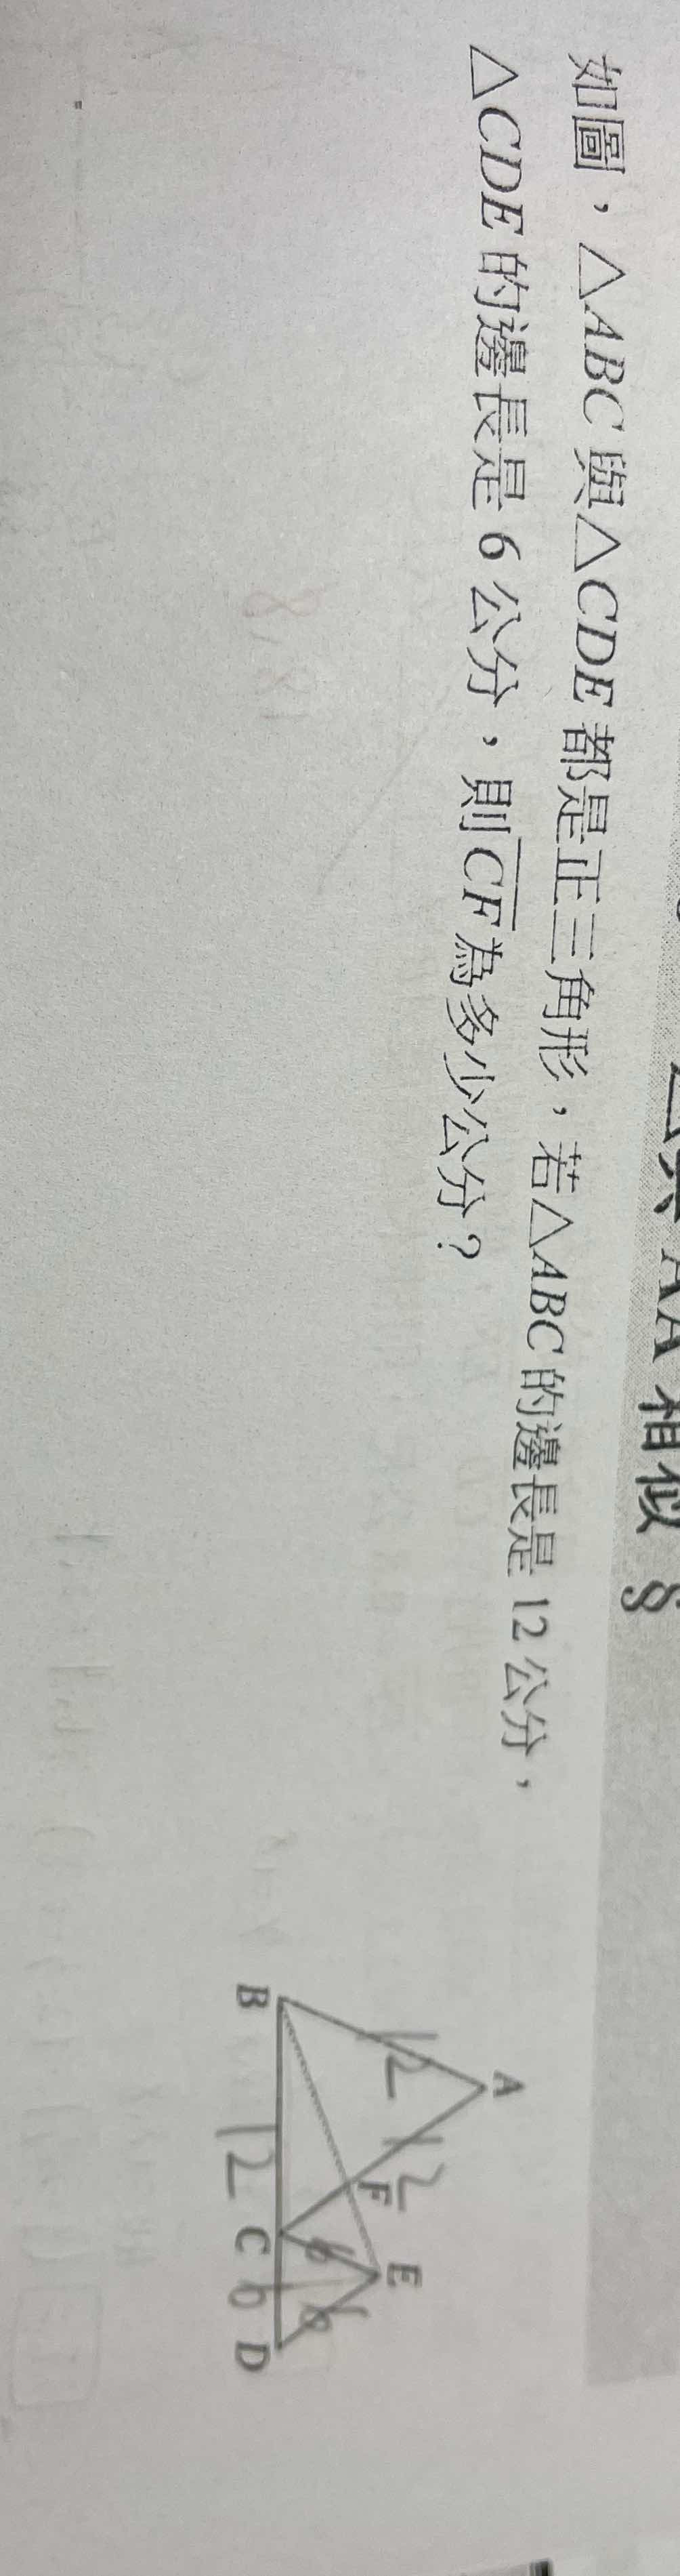 AA 相似
如圖，△ABC 與△CDE 都是正三角形，若△ABC 的邊長是 12 公分，
△CDE 的邊長是 6 公分，則CF為多少公分？
A
12
12
F
E
6
6
B
C
D
12
6